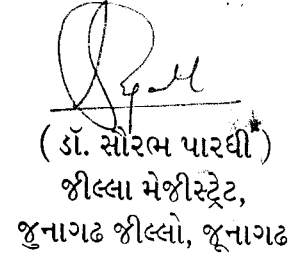 ( ડૉ. સૌરભ પારઘી )
જીલ્લા મેજીસ્ટ્રેટ,
જુનાગઢ જીલ્લો, જૂનાગઢ